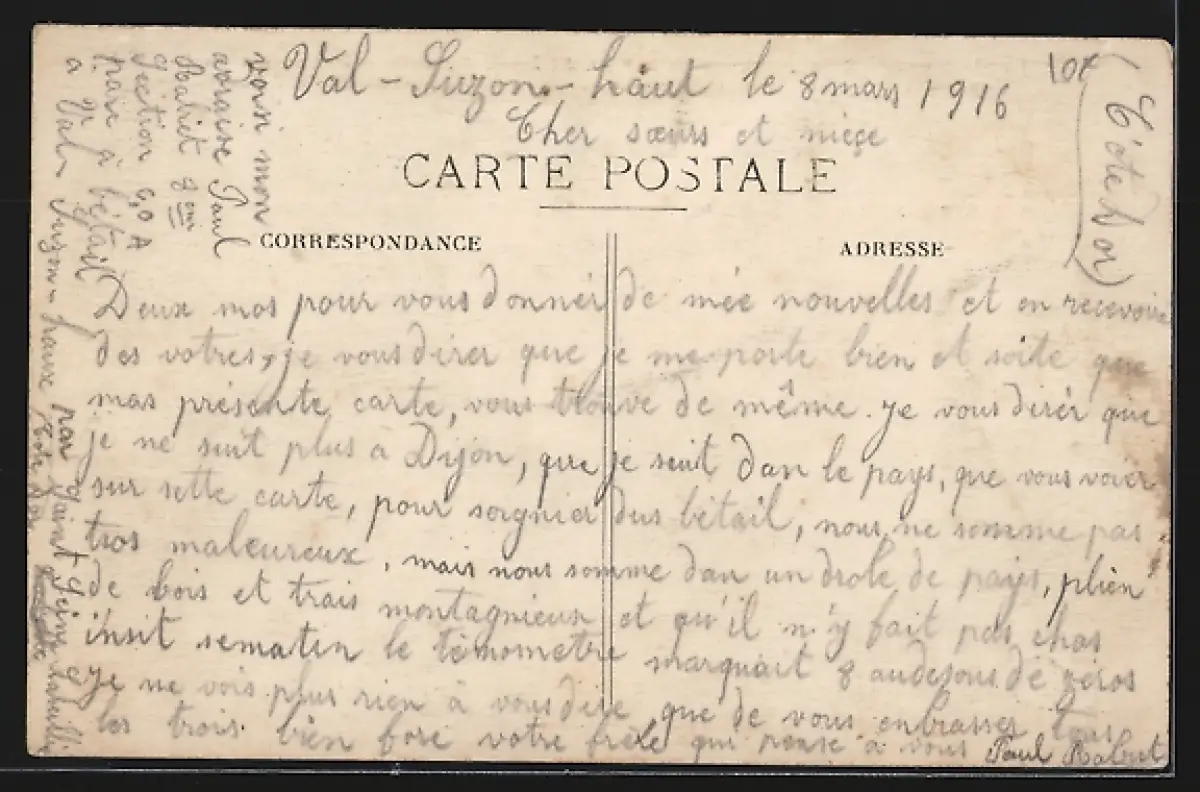 Val-Suzon-haut le 8 mars 1916
Cher sœurs et nièce
CARTE POSTALE
CORRESPONDANCE
ADRESSE
(Côte d'or)
Deux mos pour vous donner de mée nouvelles et en recevoir
des votres, je vous direr que je me porte bien et soite que
mas présente carte, vous trouve de même. je vous direr que
je ne suit plus à Dijon, que je suit dan le pays, que vous voier
sur sette carte, pour soignier dus bétail, nous ne somme pas
tros maleureux, mais nous somme dan un drole de pays, plien
de bois et trais montagnieux et qu'il n'y fait pas chos
insit sematin le témometre marquait 8 audesous de zéros
eje ne vois plus rien à vous dire, que de vous enbrasser tous
les trois bien fore votre frère qui pense à vous Paul
voisi mon
adraise Paul
Rabiet 8eme
Section C.O.A
parc à bétail
a Val Suzon-haut
par Saint Seine